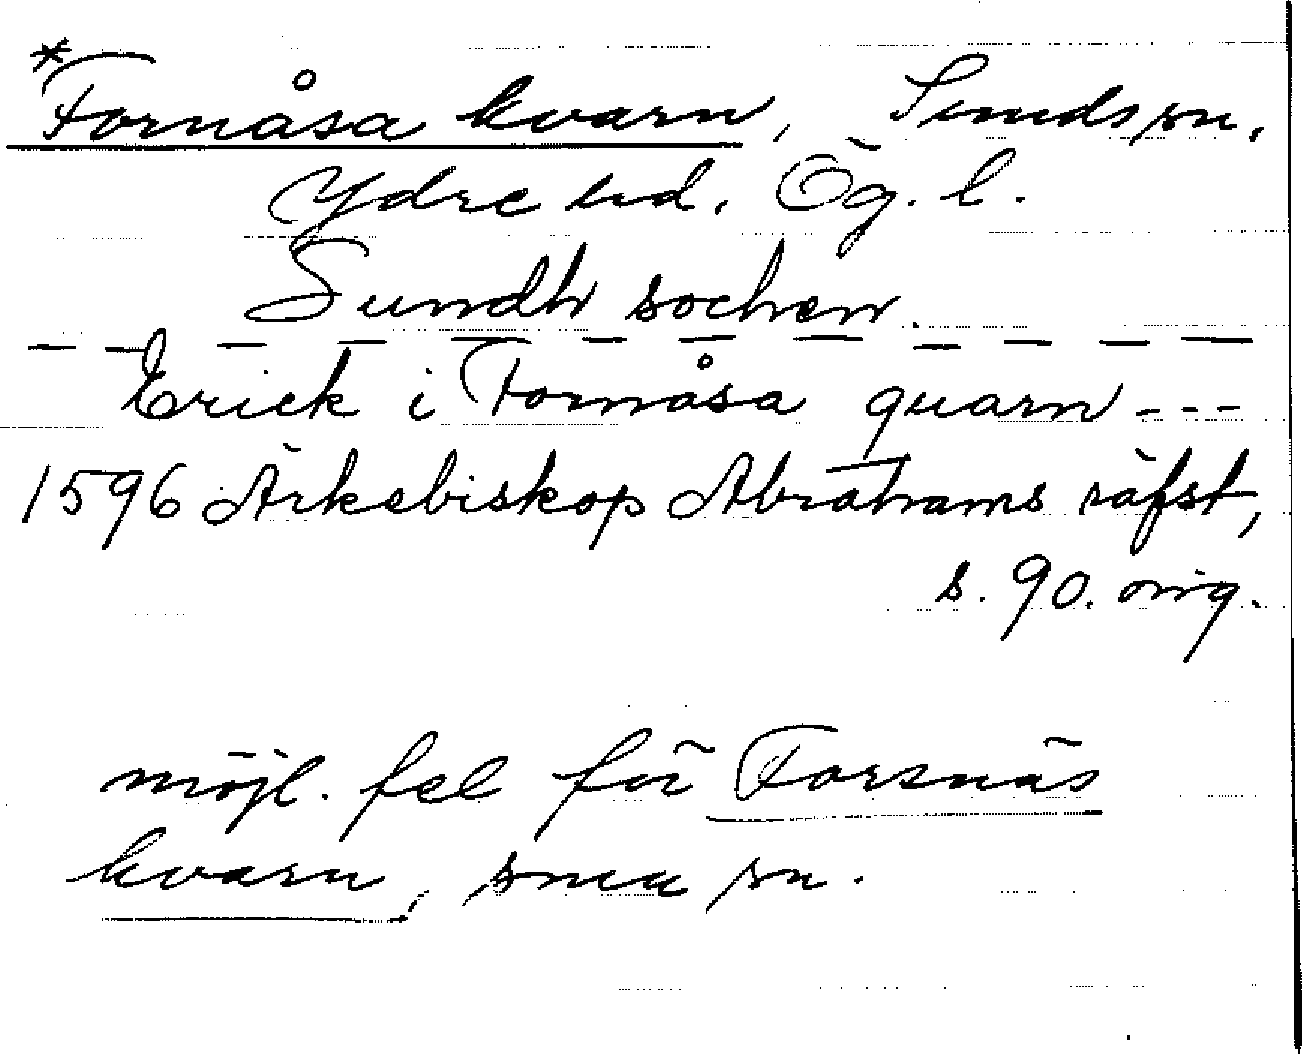 *Fornåsa kvarn, Sunds sn,
Ydre hd. Ög. l.
Sundh sochen.
Erick i Fornåsa quarn ---
1596 Ärkebiskop Abrahams räfst,
s. 90. orig.
möjl. fel för Forsnäs
kvarn, smma sn.